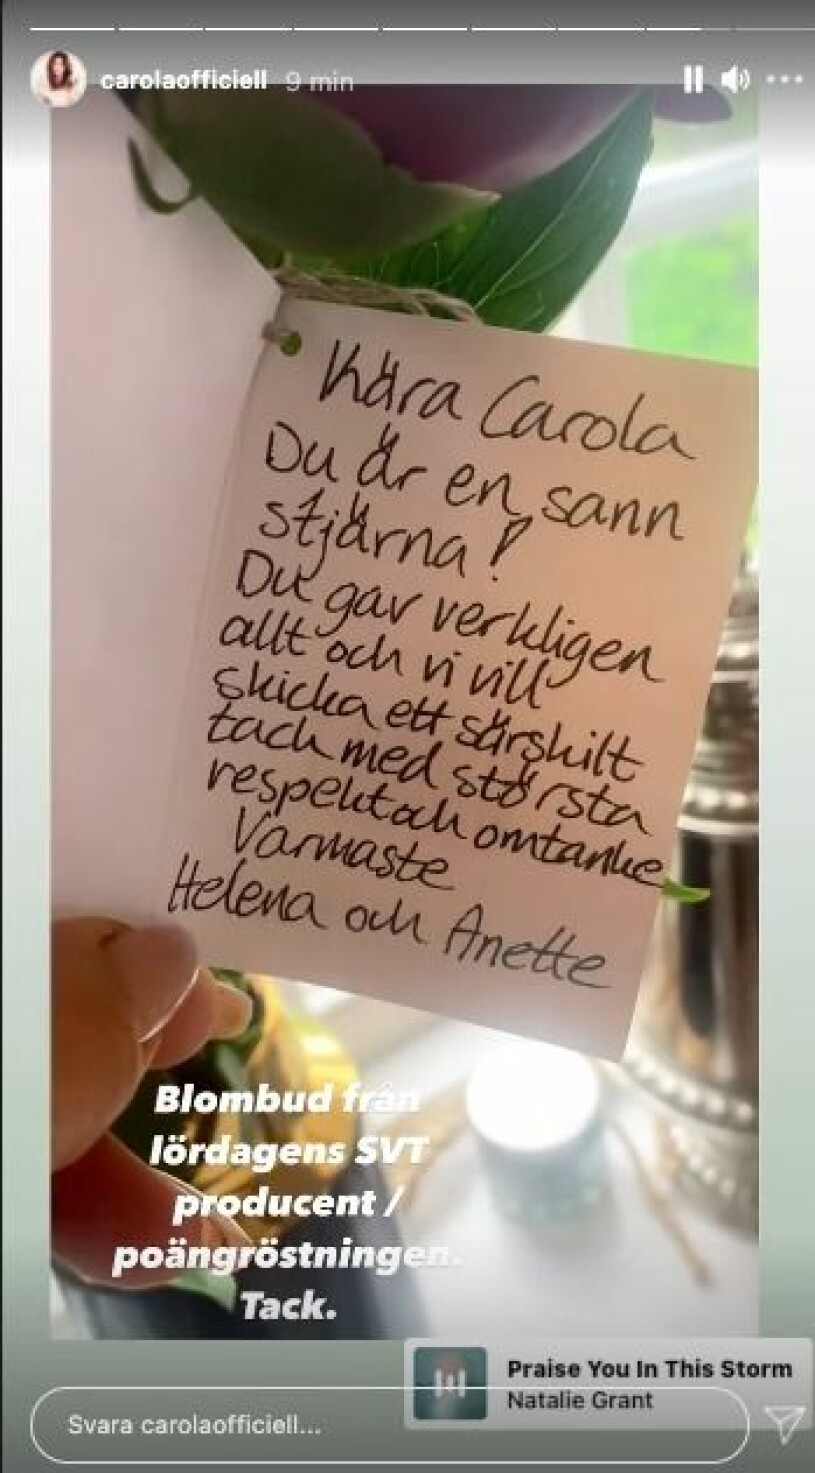 carolaofficiell 9 min
Kära Carola
Du är en sann
stjärna!
Du gav verkligen
allt och vi vill
skicka ett särskilt
tack med största
respekt och omtanke
Varmaste
Helena och Anette
Blombud från
lördagens SVT
producent /
poängröstningen.
Tack.
Praise You In This Storm
Natalie Grant
Svara carolaofficiell...